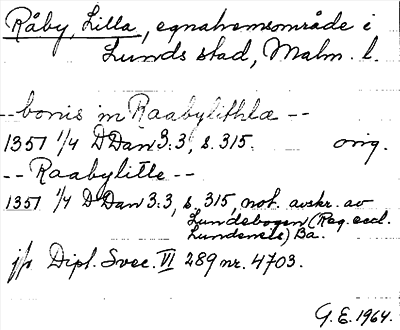 Råby, Lilla, egnahemsområde i
Lunds stad, Malm. l.
--bonis in Raabylithlæ--
1351 1/4 DDan 3:3, s. 315. orig.
--Raabylitle--
1351 1/4 DDan 3:3, s. 315, not. avskr. av
Lundebogen (Reg. eccl.
Lundensis) Ba.
jfr Dipl. Svec. VI 289 nr. 4703.
G.E. 1964.